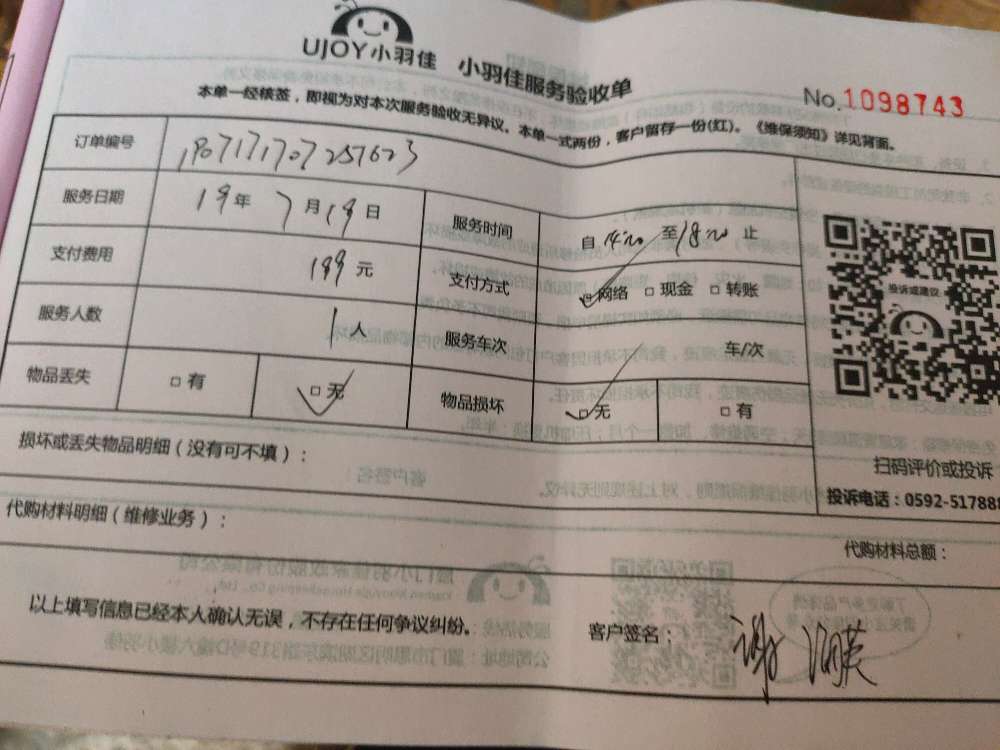 UJOY小羽佳 小羽佳服务验收单
No.1098743
本单一经核签，即视为对本次服务验收无异议。本单一式两份，客户留存一份(红)。《维保须知》详见背面。
订单编号
服务日期 19年 7月19日 服务时间 自 至 止
支付费用 199元 支付方式 □网络 □现金 □转账
投诉或建议
服务人数 1人 服务车次 车/次
物品丢失 □有 □无 物品损坏 □无 □有
损坏或丢失物品明细（没有可不填）：
扫码评价或投诉
投诉电话：0592-517888
代购材料明细（维修业务）：
代购材料总额：
以上填写信息已经本人确认无误，不存在任何争议纠纷。
客户签名：